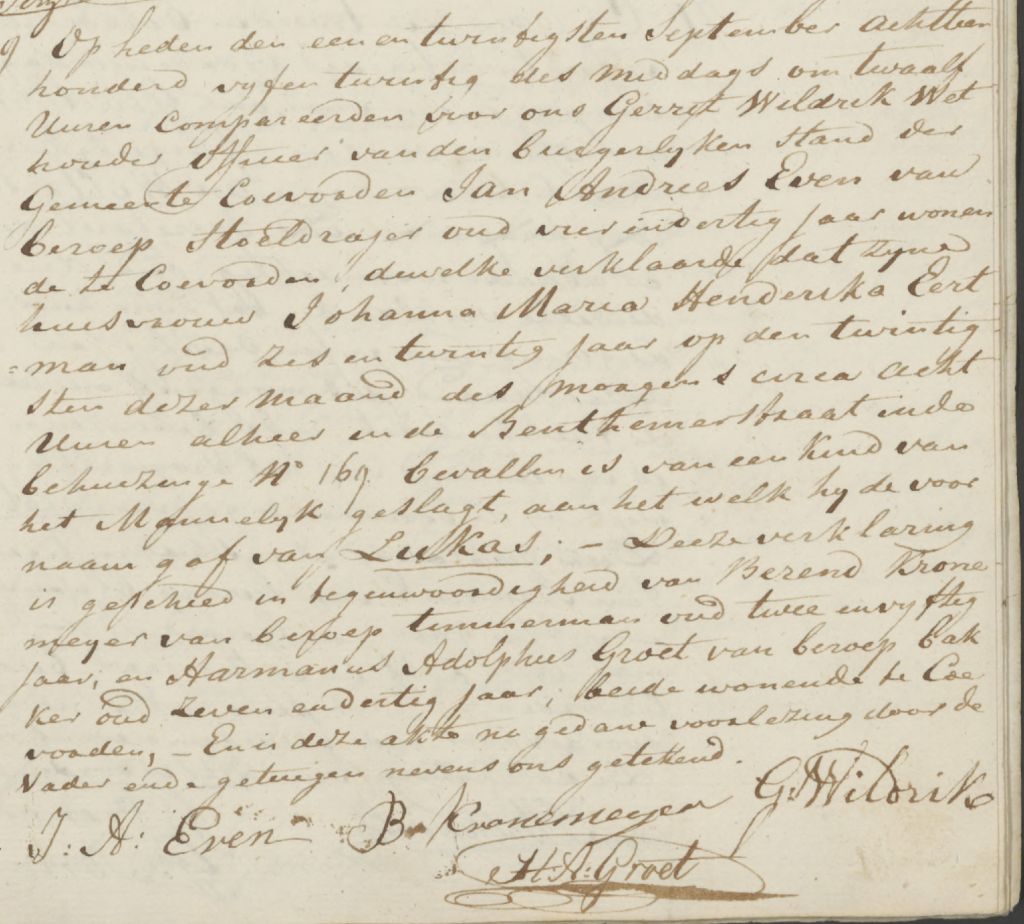 Op heden den een en twintigsten September achttien
honderd vyf en twintig des middags om twaalf
Uuren compareerden voor ons Gerrit Wildrik Wet
houder Officier van den burgerlyken Stand der
Gemeente Coevorden Jan Andries Even van
beroep Stoeldrajer oud vier endertig jaar wonen
de te Coevorden, dewelke verklaarde dat zyne
huisvrouw Johanna Maria Henderika Eert
=man oud zes en twintig jaar op den twintig
sten dezer maand des morgens circa acht
Uuren alhier in de Benthemerstraat in de
behuizinge N° 169 bevallen is van een Kind van
het Mannelyk geslagt, aan het welk hy de voor
naam gaf van Lukas; – Deeze verklaring
is geschied in tegenwoordigheid van Berend Krone
meyer van beroep timmerman oud twee en vyftig
jaar, en Harmanus Adolphus Groet van beroep bak
ker oud zeven endertig jaar, beide wonende te Coe
vorden, – En is deze akte na gedane voorlezing door de
Vader en de getuigen nevens ons getekend.
J: A: Even B Kronemeyer G. Wildrik
H: A: Groet